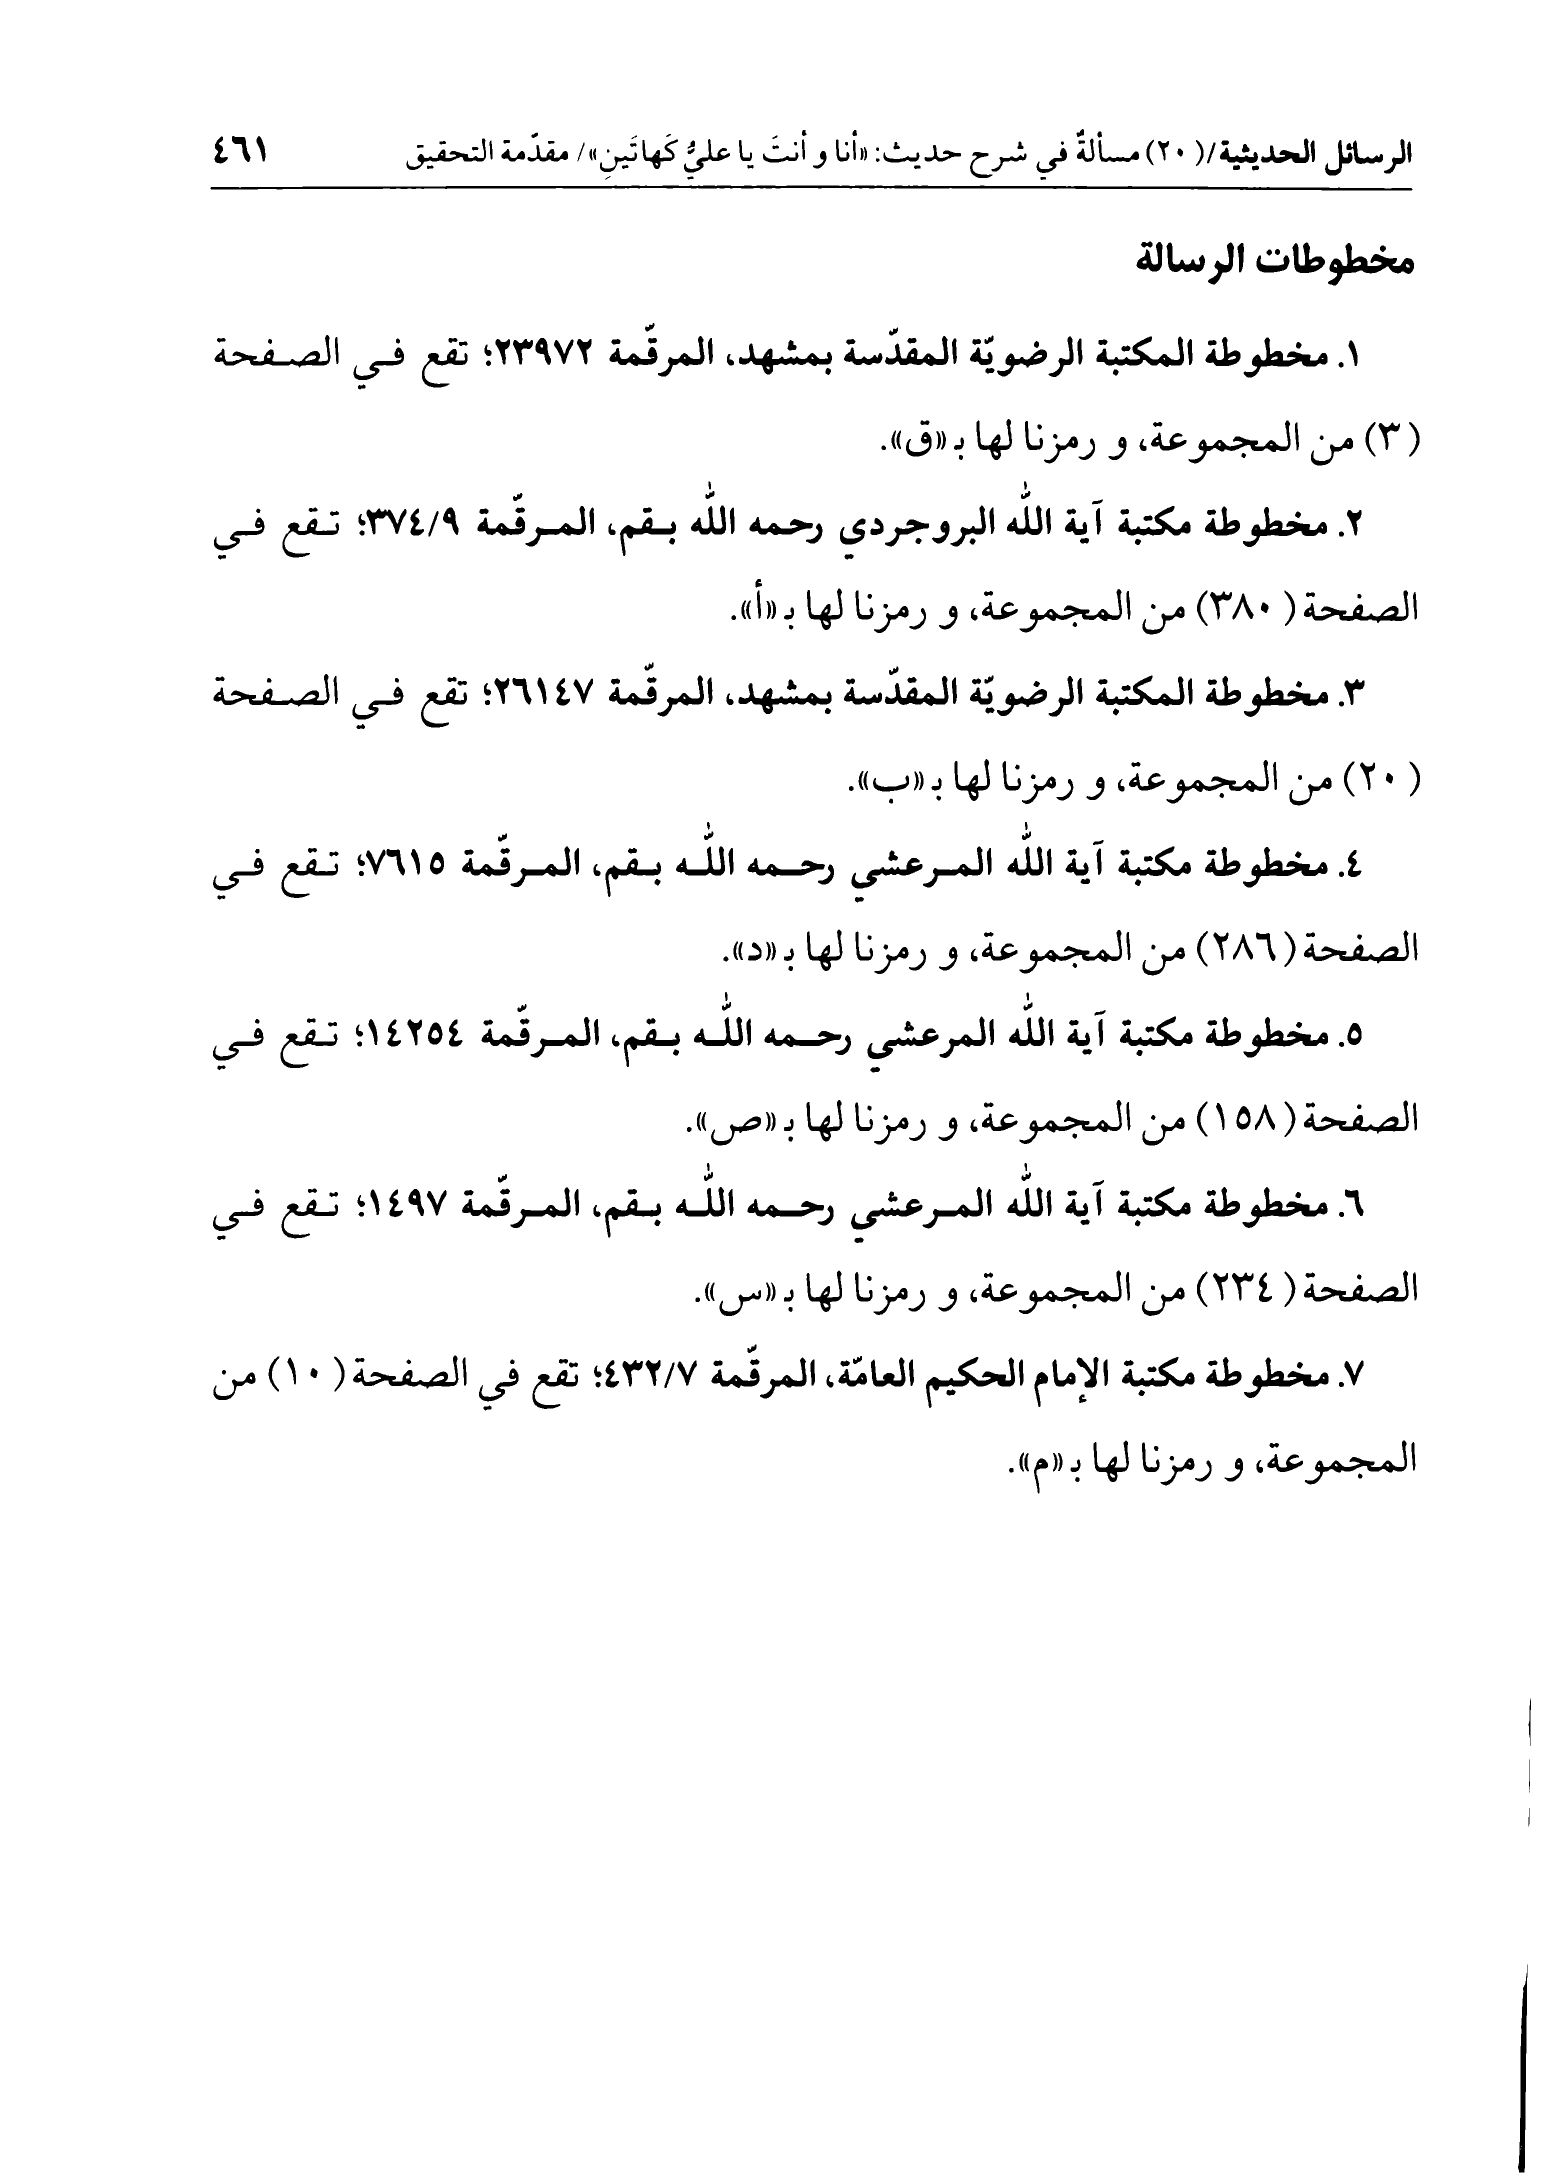 الرسائل الحديثية/(٢٠) مسألةٌ في شرح حديث: «أنا و أنتَ يا عليُّ كَهاتَينِ»/ مقدّمة التحقيق ٤٦١
مخطوطات الرسالة
١. مخطوطة المكتبة الرضويّة المقدّسة بمشهد، المرقّمة ٢٣٩٧٢؛ تقع فـي الصـفحة
(٣) من المجموعة، و رمزنا لها بـ «ق».
٢. مخطوطة مكتبة آية الله البروجردي رحمه الله بـقم، المـرقّمة ٣٧٤/٩؛ تـقع فـي
الصفحة (٣٨٠) من المجموعة، و رمزنا لها بـ «أ».
٣. مخطوطة المكتبة الرضويّة المقدّسة بمشهد، المرقّمة ٢٦١٤٧؛ تقع فـي الصـفحة
(٢٠) من المجموعة، و رمزنا لها بـ «ب».
٤. مخطوطة مكتبة آية الله المـرعشي رحـمه اللـه بـقم، المـرقّمة ٧٦١٥؛ تـقع فـي
الصفحة (٢٨٦) من المجموعة، و رمزنا لها بـ «د».
٥. مخطوطة مكتبة آية الله المرعشي رحـمه اللـه بـقم، المـرقّمة ١٤٢٥٤؛ تـقع فـي
الصفحة (١٥٨) من المجموعة، و رمزنا لها بـ «ص».
٦. مخطوطة مكتبة آية الله المـرعشي رحـمه اللـه بـقم، المـرقّمة ١٤٩٧؛ تـقع فـي
الصفحة (٢٣٤) من المجموعة، و رمزنا لها بـ «س».
٧. مخطوطة مكتبة الإمام الحكيم العامّة، المرقّمة ٤٣٢/٧؛ تقع في الصفحة (١٠) من
المجموعة، و رمزنا لها بـ «م».